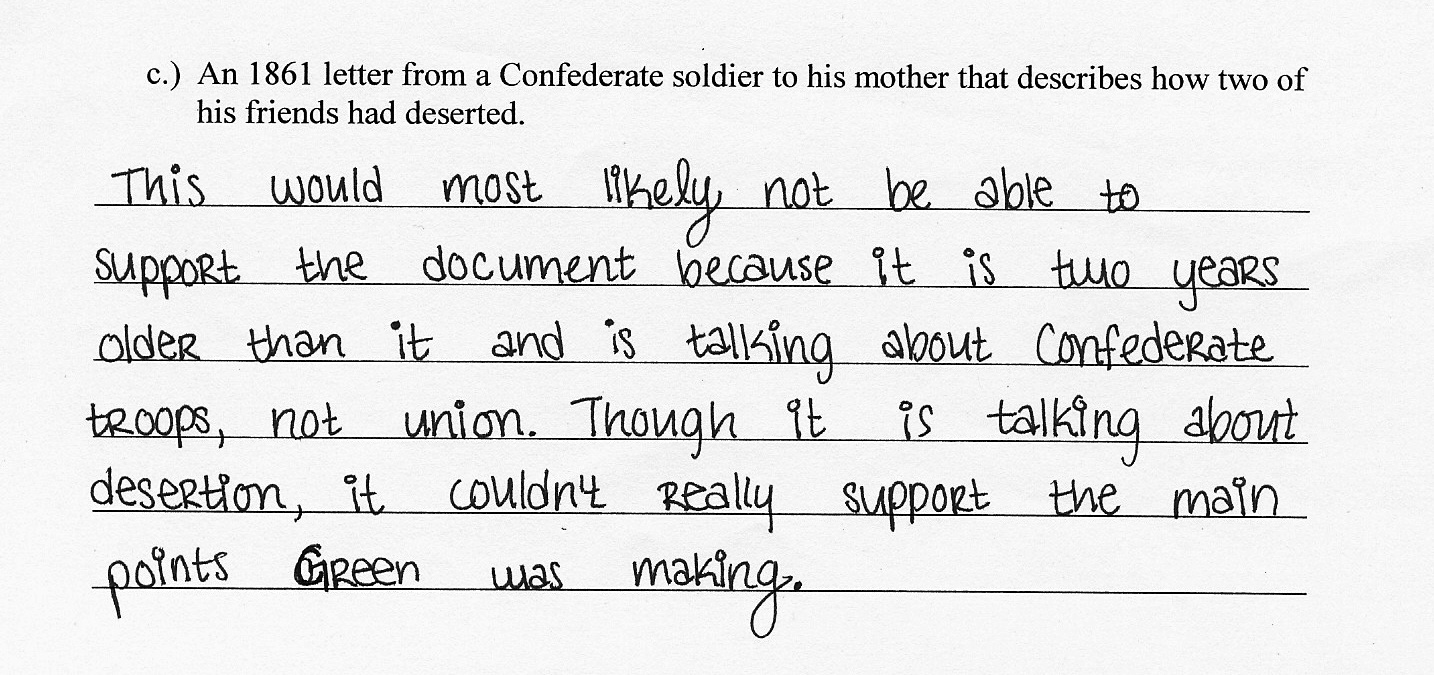 c.) An 1861 letter from a Confederate soldier to his mother that describes how two of
his friends had deserted.
This would most likely not be able to
support the document because it is two years
older than it and is talking about Confederate
troops, not union. Though it is talking about
desertion, it couldn't really support the main
points Green was making.